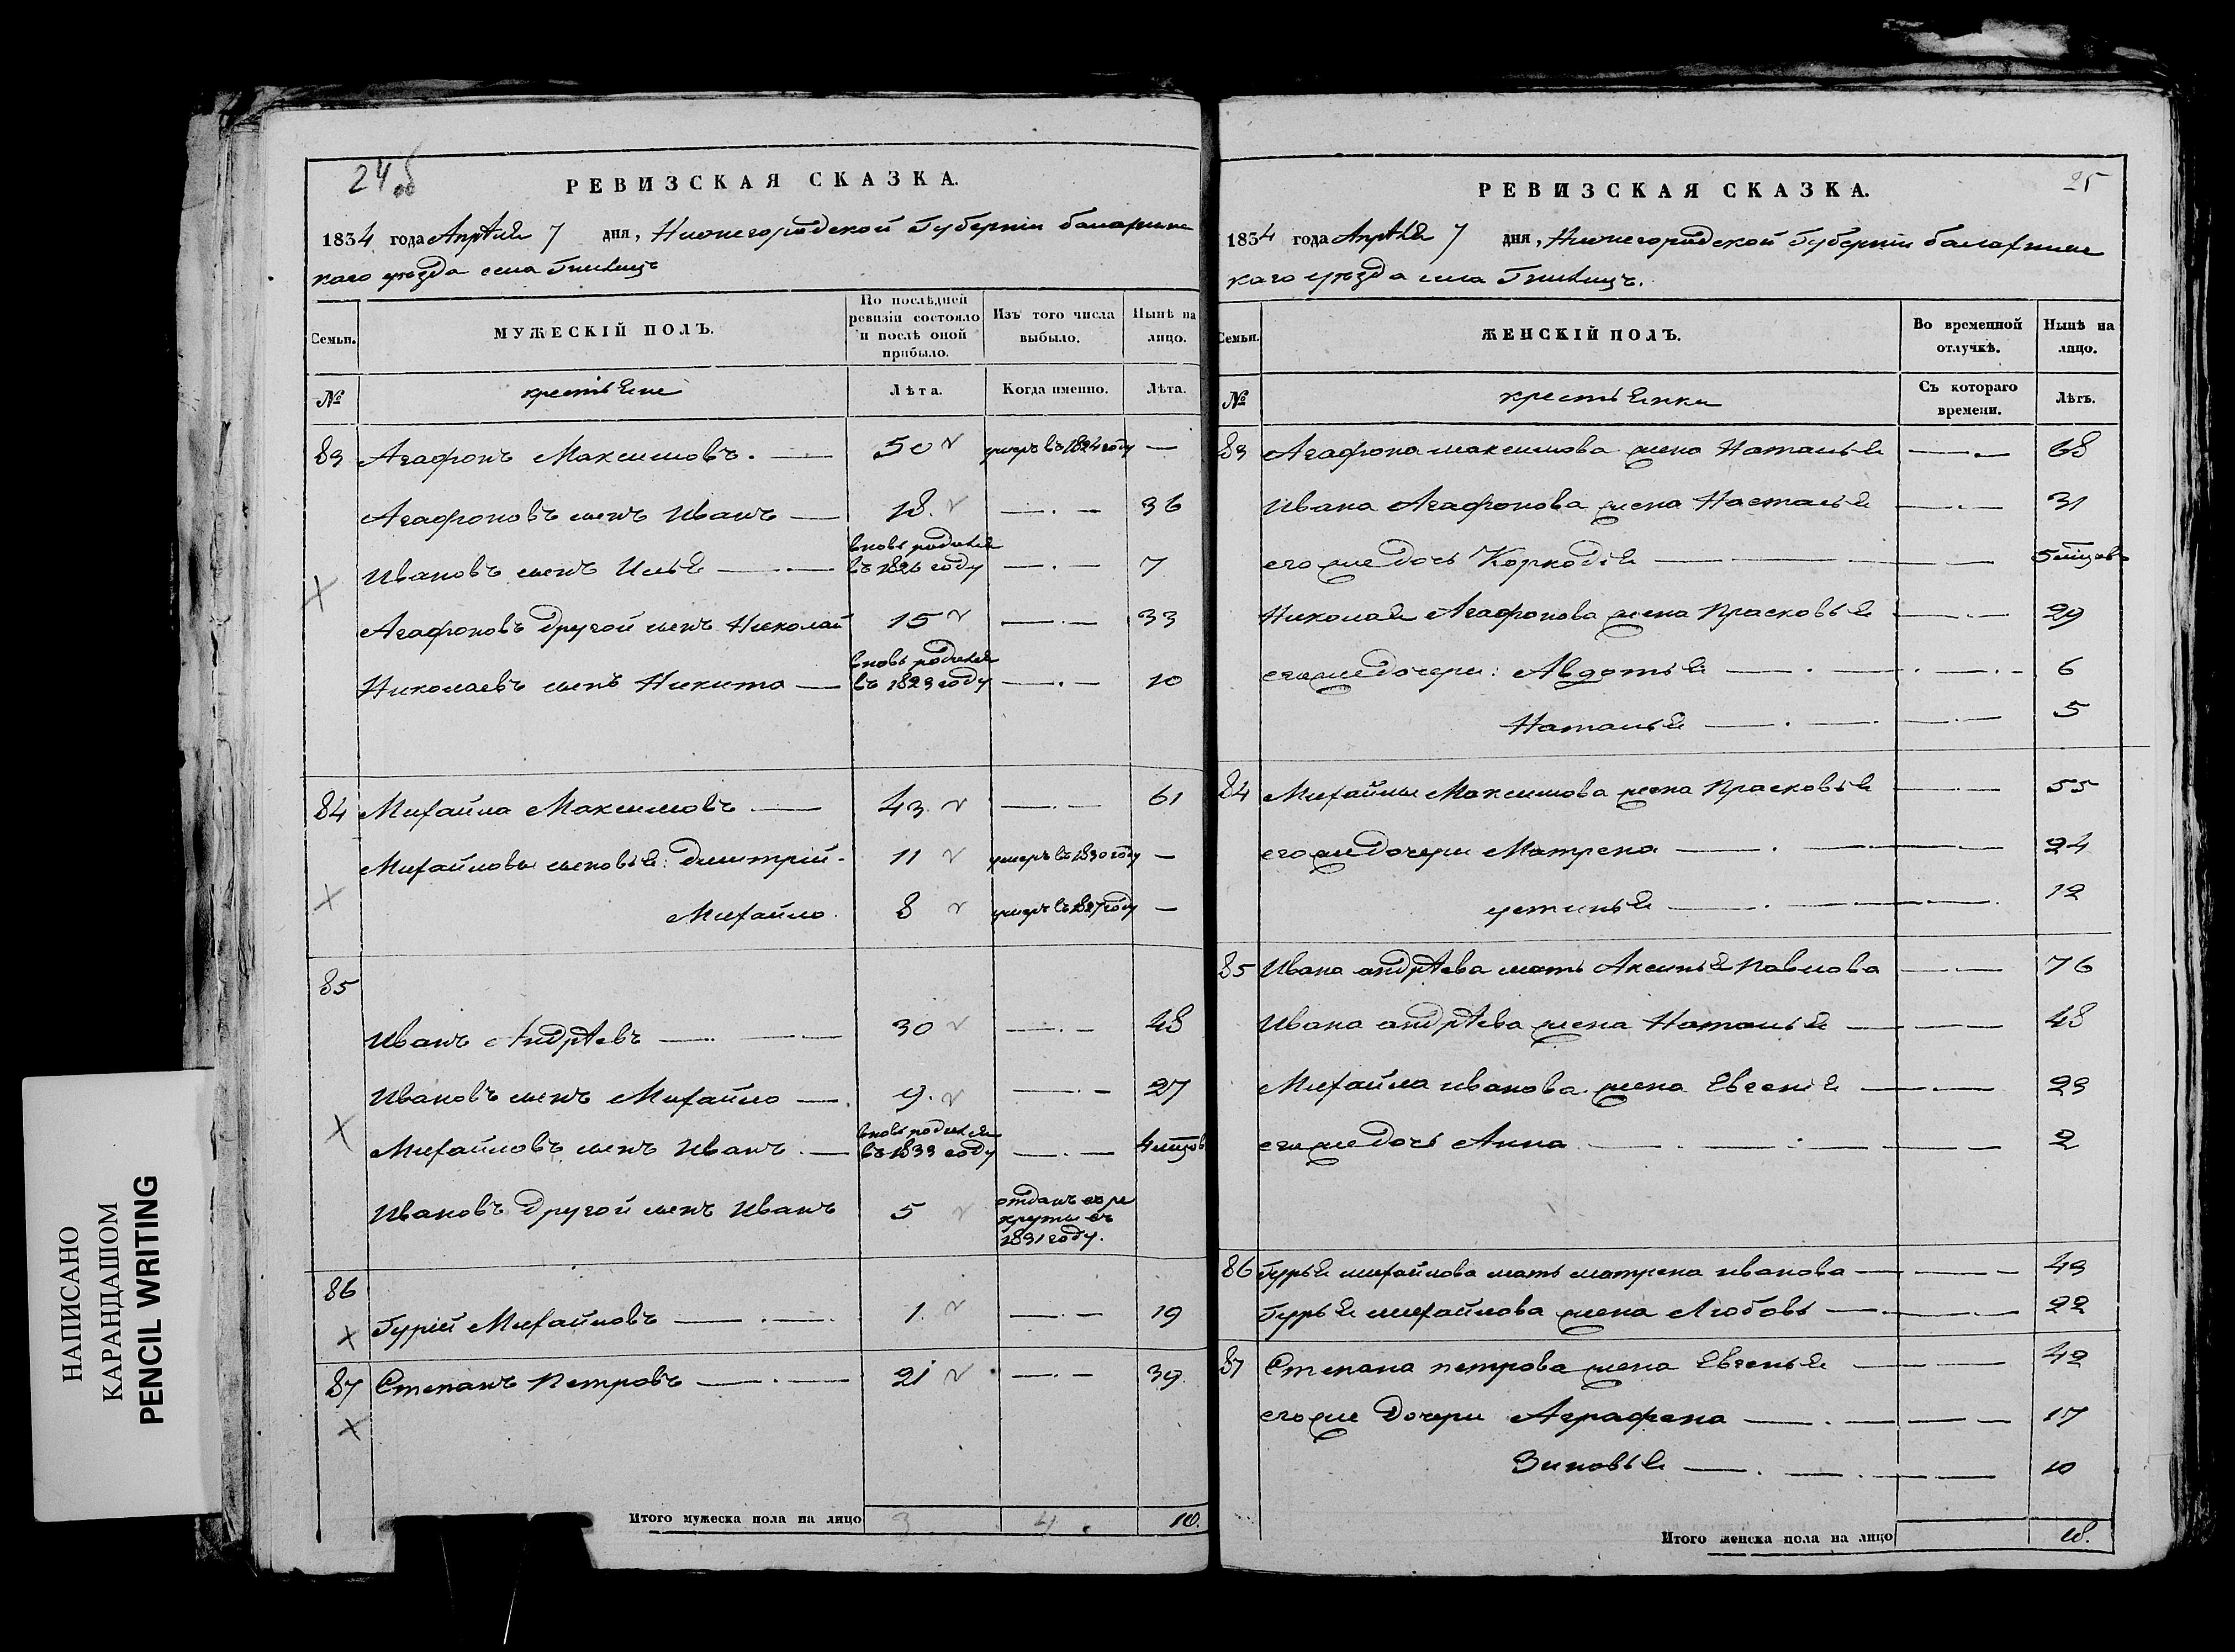 24 об
РЕВИЗСКАЯ СКАЗКА.
1834 года Апрѣля 7 дня, Нижегородской Губерніи балахнинс
каго уѣзда села Гнилицъ
Семьи. МУЖЕСКІЙ ПОЛЪ. По послѣдней ревизіи состояло и послѣ оной прибыло. Изъ того числа выбыло. Нынѣ на лицо.
№ крестьяне Лѣта. Когда именно. Лѣта.
83 Агафонъ Максимовъ. — 50 умеръ въ 1824 году —
Агафоновъ сынъ Иванъ — 18. — 36
Ивановъ сынъ Илья — вновь родился въ 1826 году — 7
Агафоновъ другой сынъ Николай 15 — 33
Николаевъ сынъ Никита — вновь родился въ 1823 году — 10
84 Михайла Максимовъ — 43. — 61
Михайловы сыновья: Дмитрій - 11 умеръ въ 1830 году —
Михайло 8 умеръ въ 1827 году —
85
Иванъ Андрѣевъ — 30 — 48
Ивановъ сынъ Михайло — 9. — 27
Михайловъ сынъ Иванъ. — вновь родился въ 1833 году — 4 мцовъ
Ивановъ другой сынъ Иванъ 5 отданъ въ ре
круты въ
1831 году.
86
Гурій Михайловъ — 1. — 19
87 Степанъ Петровъ — 21 — 39
Итого мужеска пола на лицо 3 4 10.
25
РЕВИЗСКАЯ СКАЗКА.
1834 года Апрѣля 7 дня, Нижегородской Губерніи балахнинс
каго уѣзда села Гнилицъ.
Семьи. ЖЕНСКІЙ ПОЛЪ. Во временной отлучкѣ. Нынѣ на лицо.
№ крестьянки Съ котораго времени. Лѣтъ.
83 Агафона максимова жена Наталья — 68
Ивана Агафонова жена Насталья — 31
его же дочь Коркодія — 5 мцовъ
Николая Агафонова жена Прасковья — 29
его же дочери: Авдотья — 6
Наталья — 5
84 Михайлы Максимова жена Прасковья — 55
его же дочери Матрена — 24
устинья — 12
85 Ивана андрѣева мать Аксинья Павлова — 76
Ивана андрѣева жена Наталья — 48
Михайла иванова жена Евгенія — 23
его же дочь Анна — 2
86 Гурья михайлова мать матрена иванова — 43
Гурья михайлова жена Любовь — 22
87 Степана петрова жена Евгенья — 42
его же дочери Аграфена — 17
Зиновья — 10
Итого женска пола на лицо 18.
НАПИСАНО
КАРАНДАШОМ
PENCIL WRITING